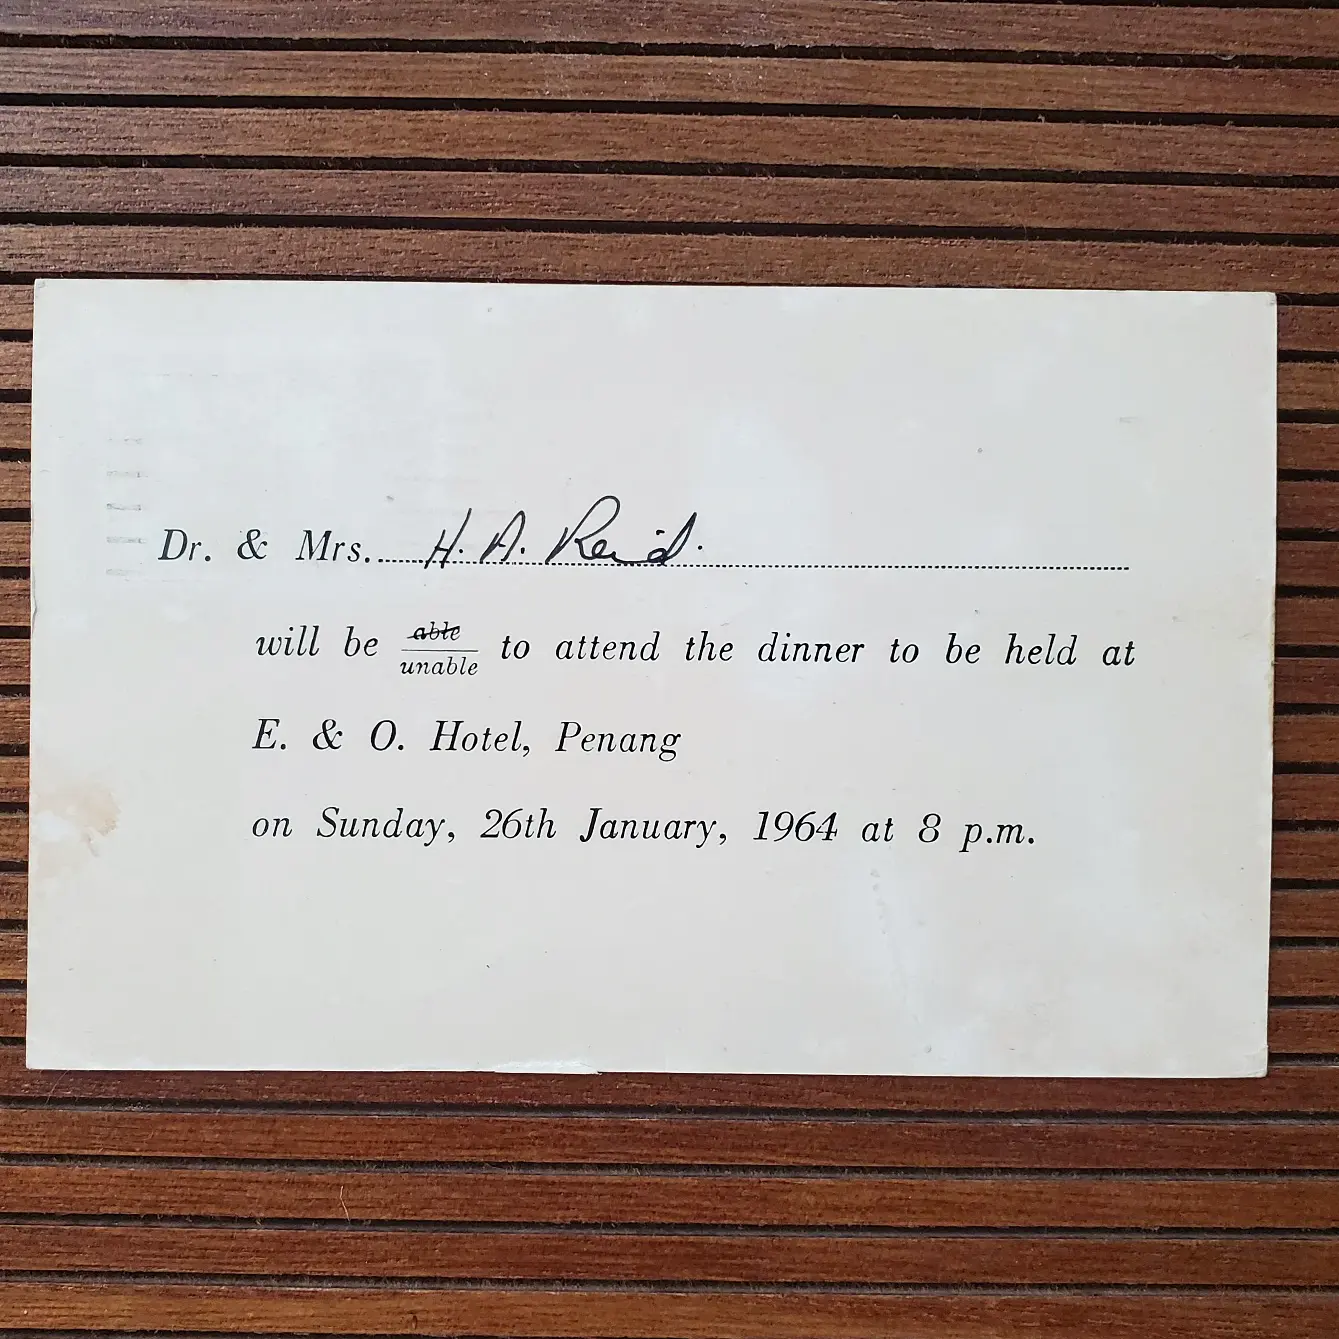 Dr. & Mrs. H. A. Reid.
will be able/unable to attend the dinner to be held at
E. & O. Hotel, Penang
on Sunday, 26th January, 1964 at 8 p.m.